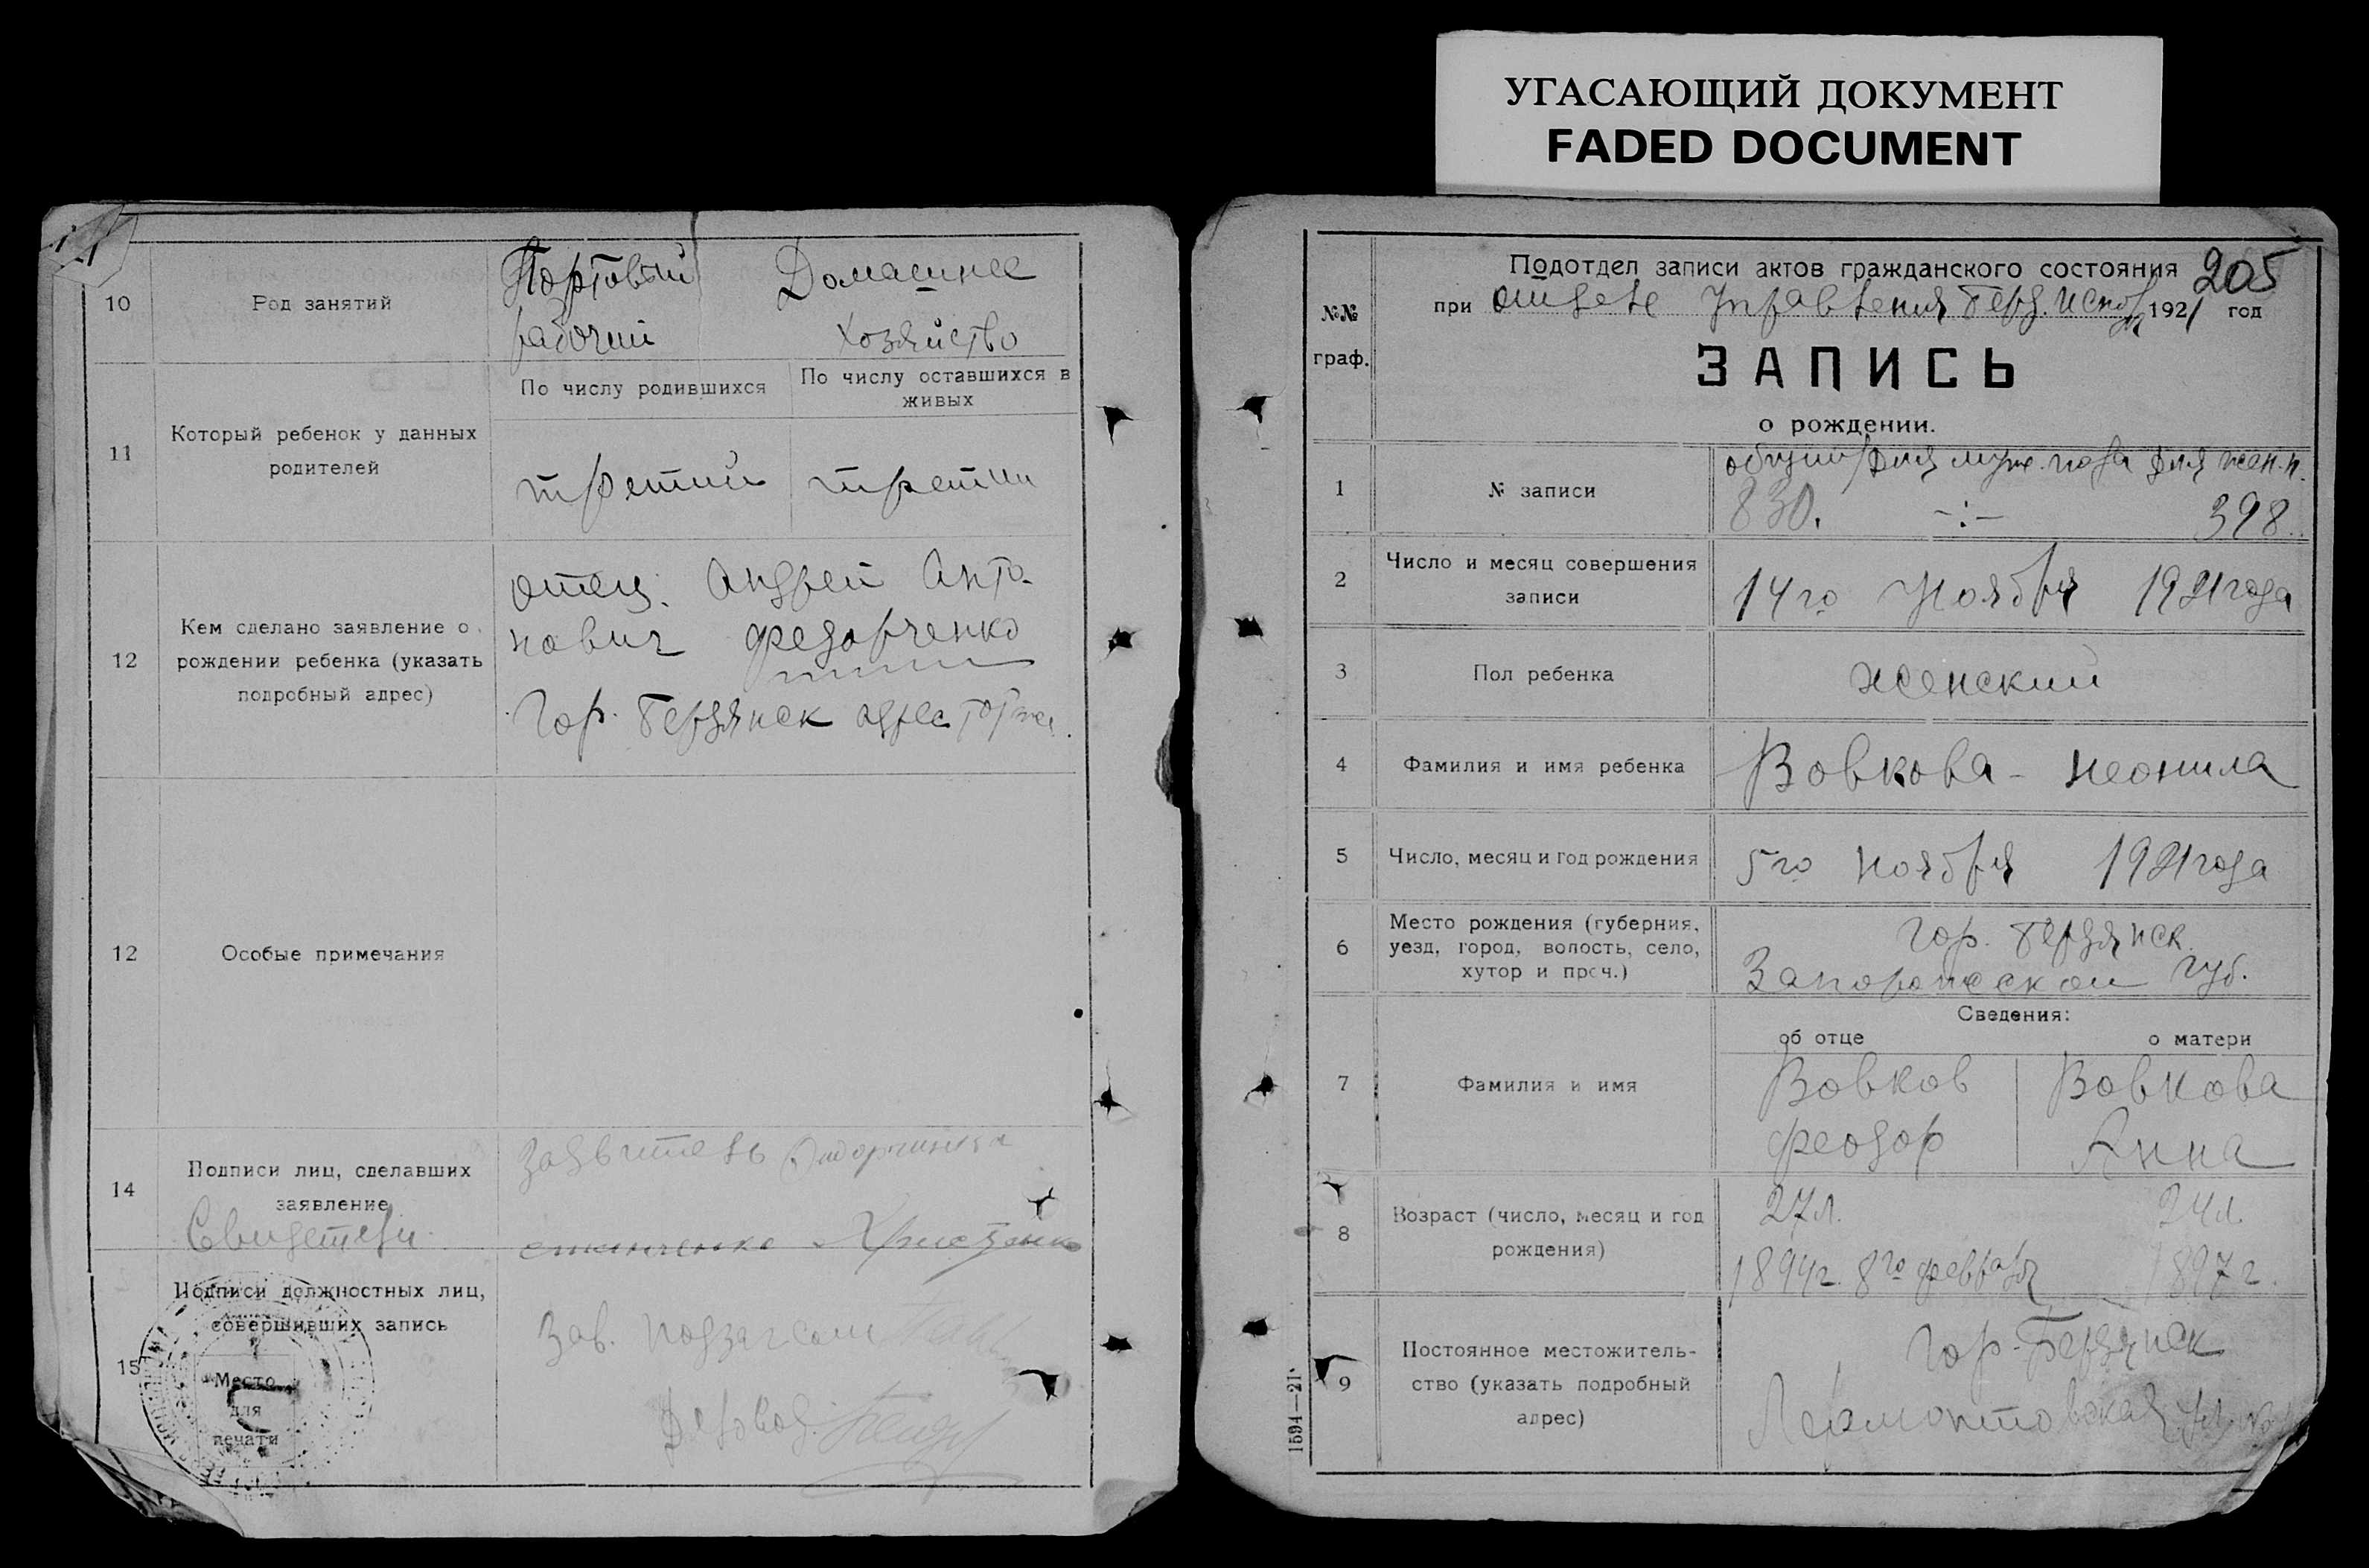 УГАСАЮЩИЙ ДОКУМЕНТ
FADED DOCUMENT
10
Род занятий
Портовый
рабочий
Домашнее
хозяйство
11
Который ребенок у данных
родителей
По числу родившихся
По числу оставшихся в
живых
третий
третий
12
Кем сделано заявление о
рождении ребенка (указать
подробный адрес)
отец. Андрей Анто-
нович Федорченко
Гор. Бердянск адрес тот же.
12
Особые примечания
14
Подписи лиц, сделавших
заявление
Свидетели
Заявитель
15
Подписи должностных лиц,
совершивших запись
Место
для
печати
Зав. Подзагсом
Деловод.
205
№№
граф.
Подотдел записи актов гражданского состояния
при отделе Управления Берд. Испол 1921 год
ЗАПИСЬ
о рождении.
1
№ записи
общий для муж. пола для жен. п.
830. -:- 398.
2
Число и месяц совершения
записи
14го Ноября 1921 года
3
Пол ребенка
женский
4
Фамилия и имя ребенка
Вовкова - Неонила
5
Число, месяц и год рождения
5го Ноября 1921 года
6
Место рождения (губерния,
уезд, город, волость, село,
хутор и проч.)
Гор. Бердянск
Запорожской Губ.
Сведения:
об отце
о матери
7
Фамилия и имя
Вовков
Феодор
Вовкова
Анна
8
Возраст (число, месяц и год
рождения)
27 л.
1894 г. 8го февраля
24 л.
1897 г.
9
Постоянное местожитель-
ство (указать подробный
адрес)
Гор. Бердянск
Лермонтовская ул.
1594—21.